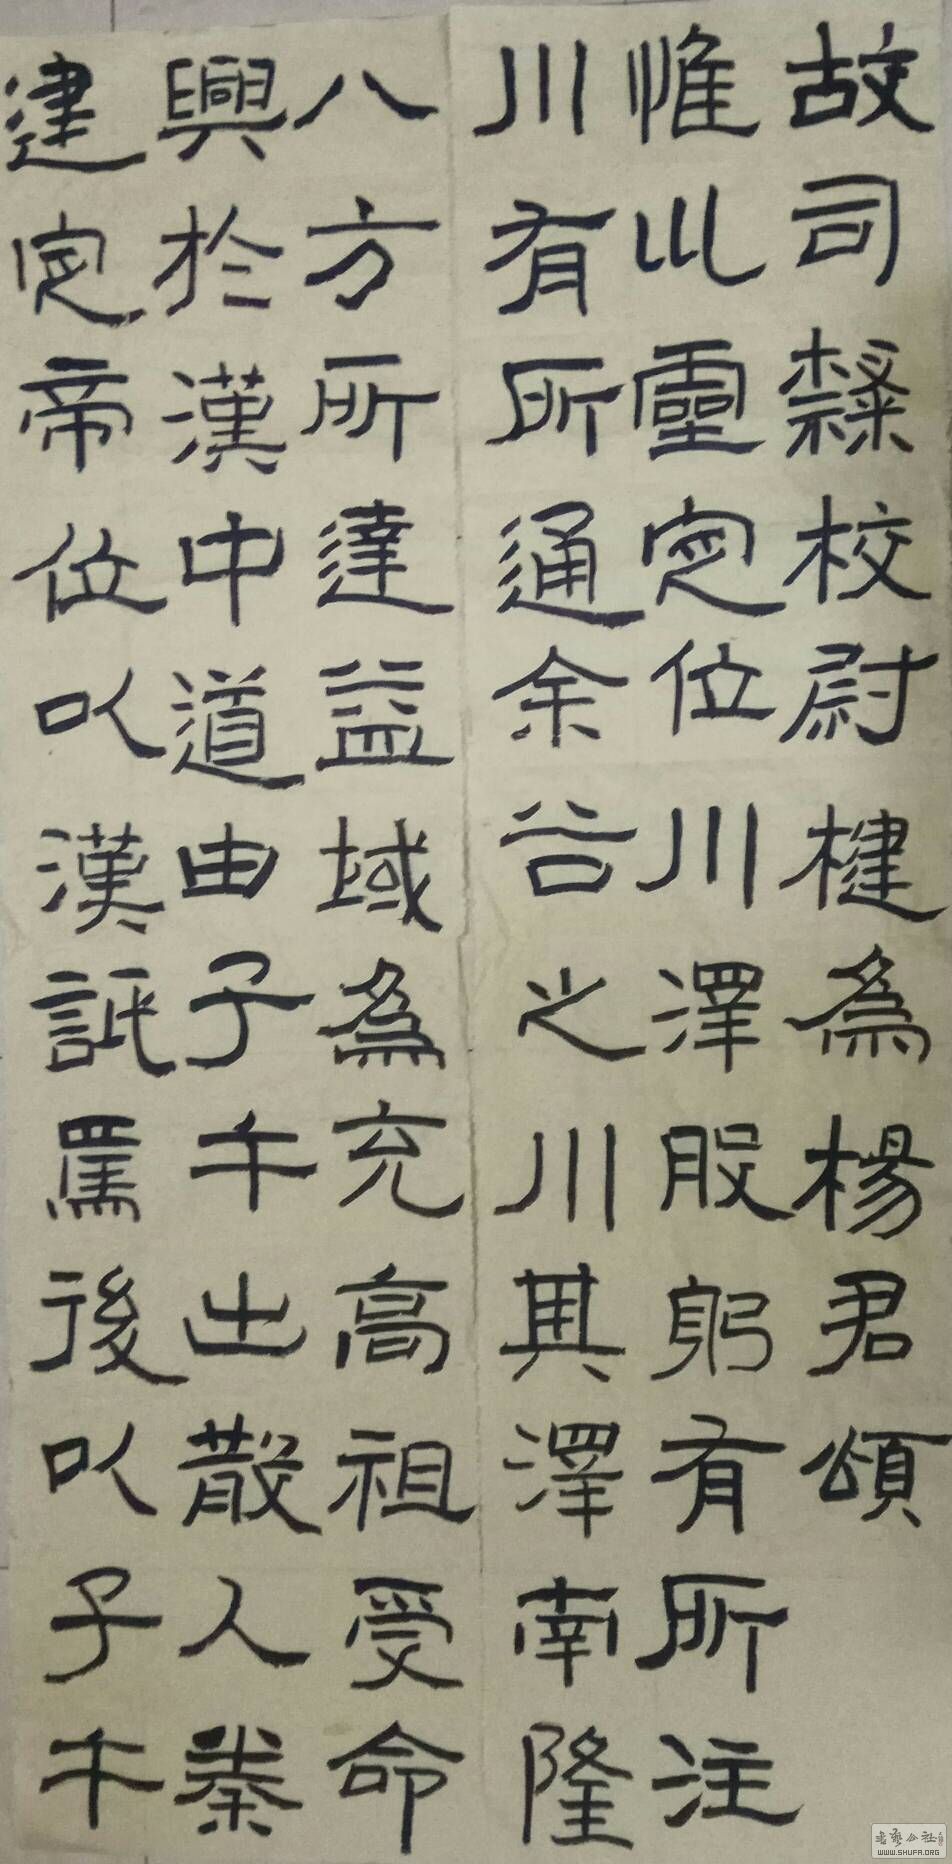 故司隸校尉楗為楊君頌
惟巛靈定位川澤股躬有所注
川有所通余谷之川其澤南隆
八方所達益域為充高祖受命
興於漢中道由子午出散入秦
建定帝位以漢詆焉後以子午
書藝公社
WWW.SHUFA.ORG